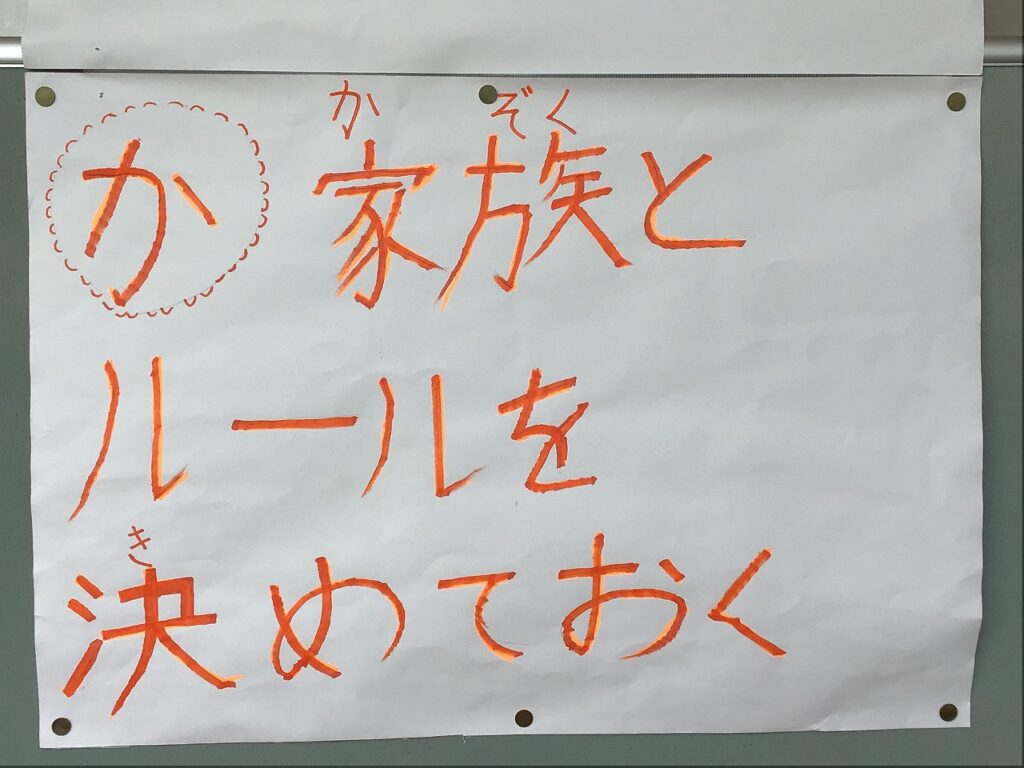 か ぞく
か 家族と
ルールを
き
決めておく